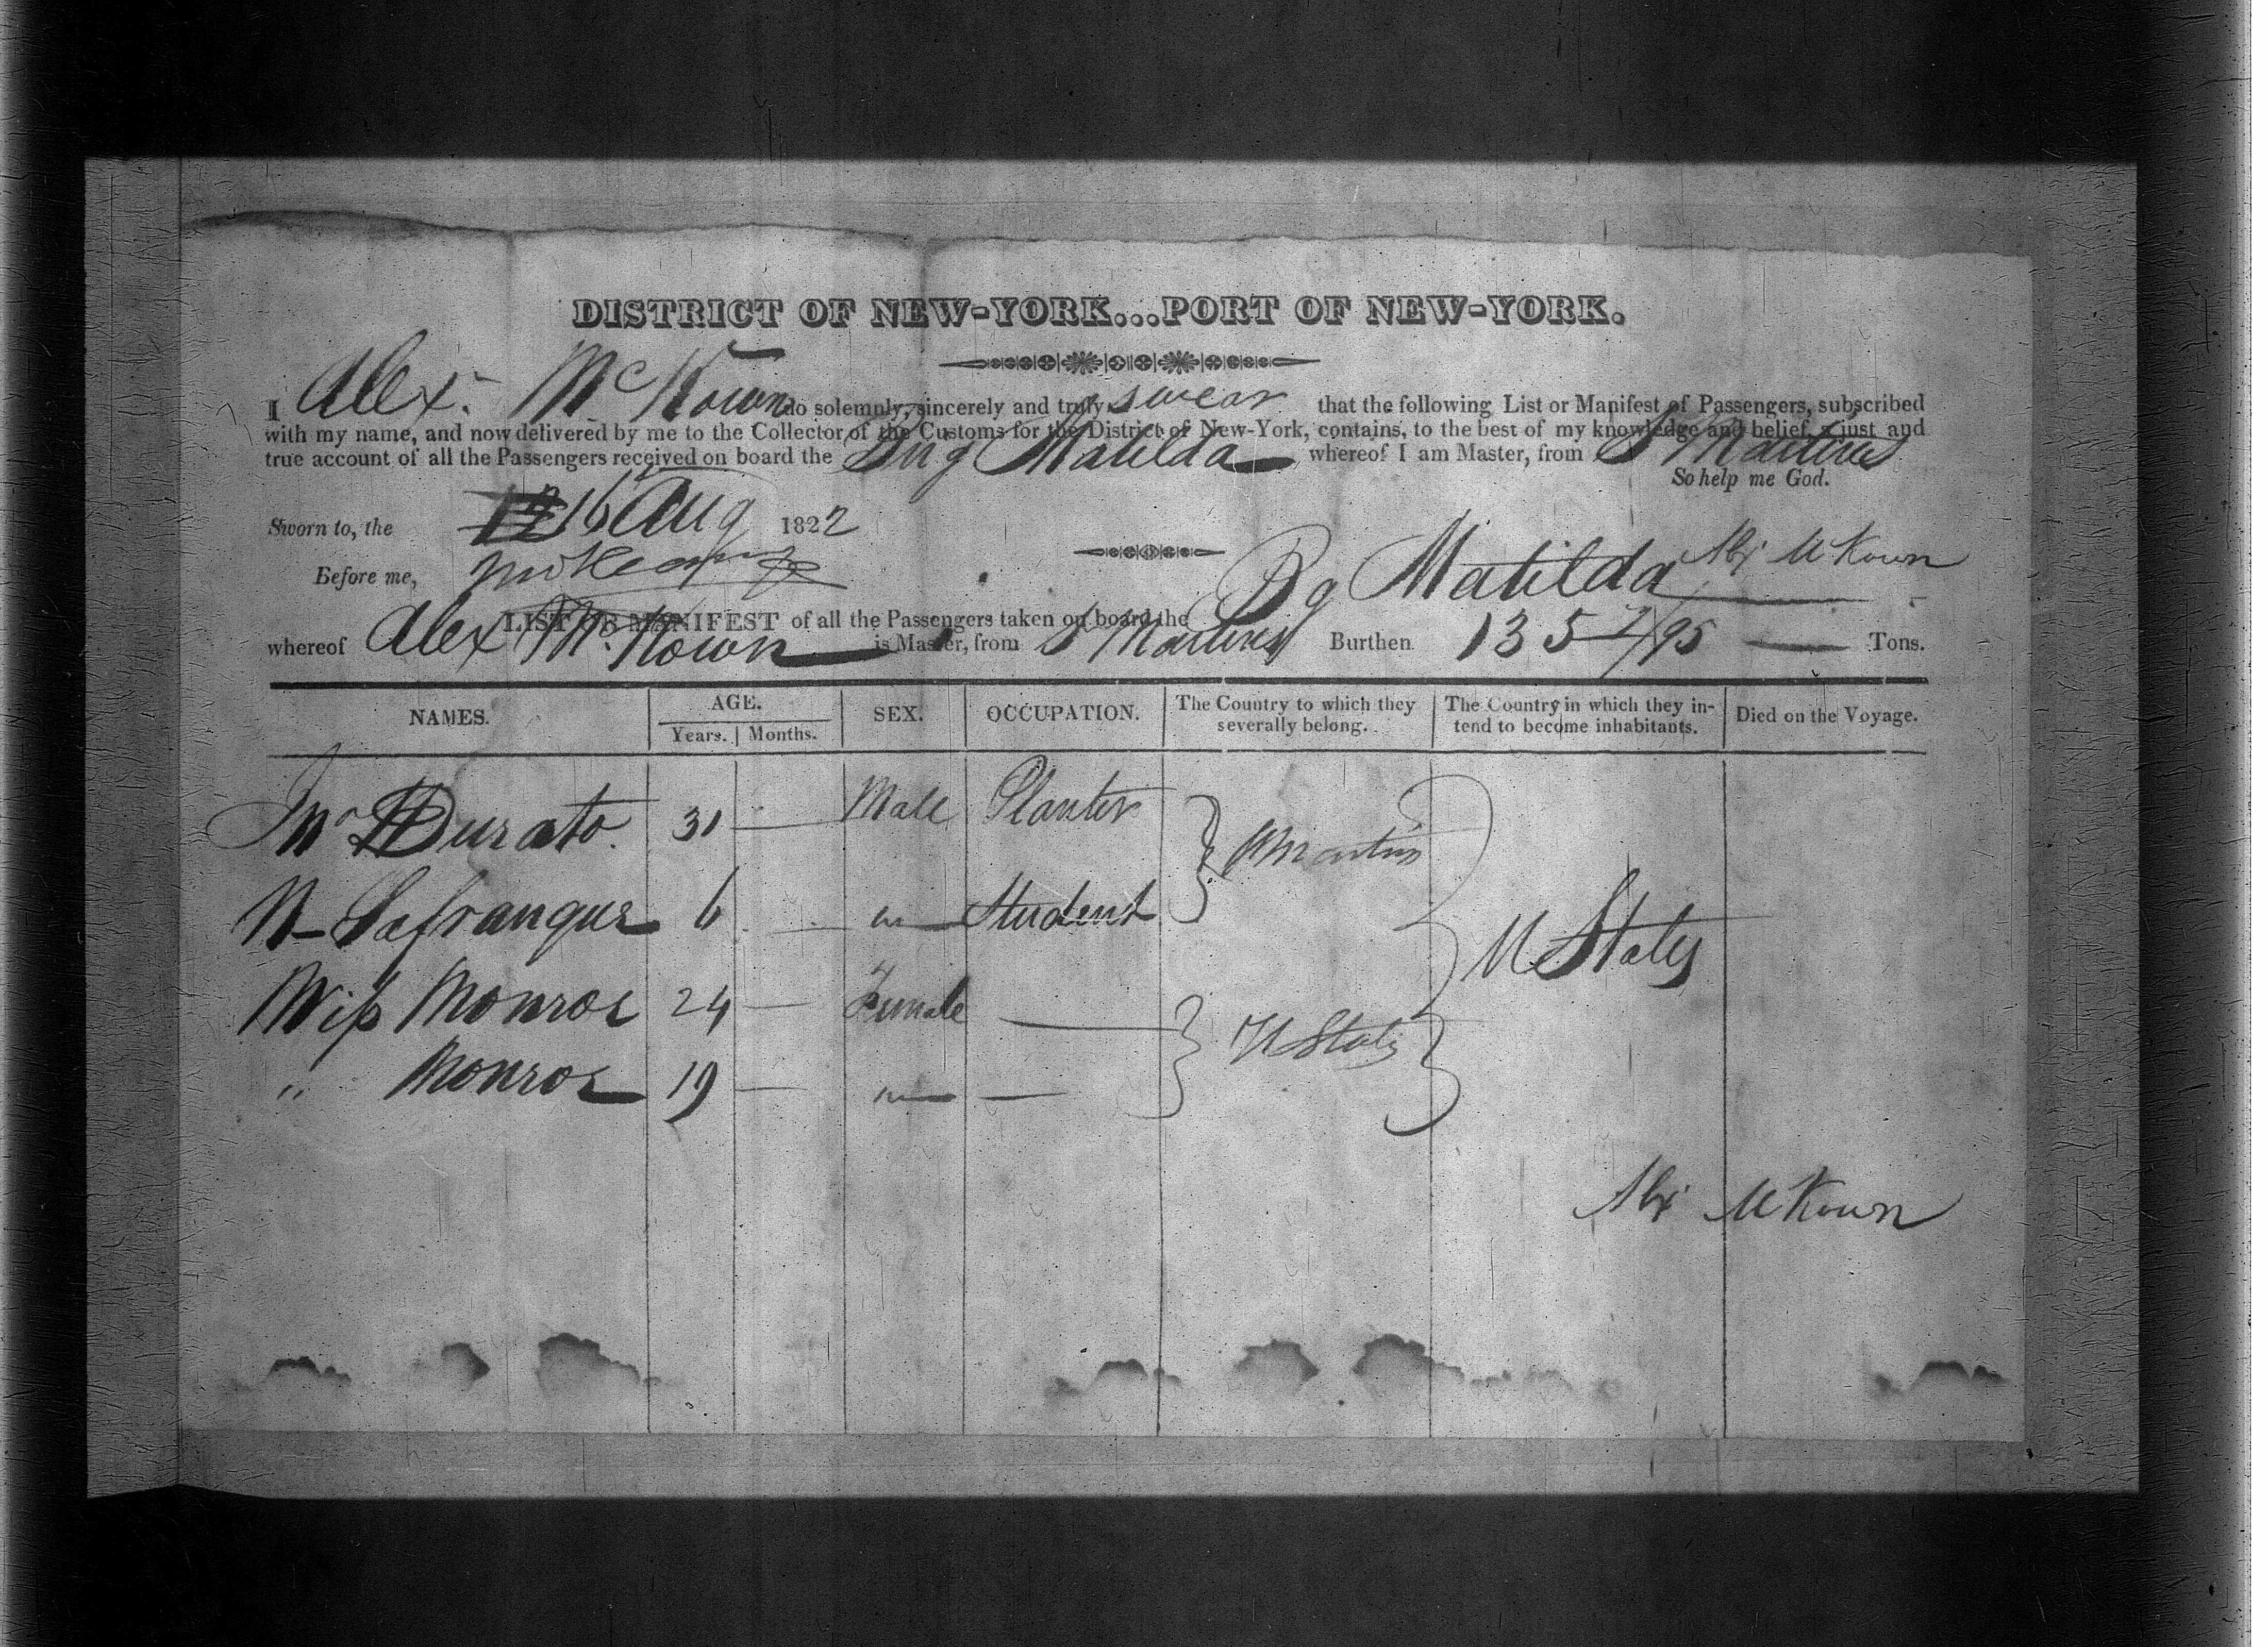 DISTRICT OF NEW-YORK...PORT OF NEW-YORK.
I Alex. McKown do solemnly, sincerely and truly swear that the following List or Manifest of Passengers, subscribed
with my name, and now delivered by me to the Collector of the Customs for the District of New-York, contains, to the best of my knowledge and belief, a just and
true account of all the Passengers received on board the Brig Matilda whereof I am Master, from St Martins
So help me God.
Sworn to, the 16 Aug 1822
Alex McKown
Before me,
LIST OR MANIFEST of all the Passengers taken on board the Bg Matilda
whereof Alex McKown is Master, from St Martins Burthen 135 7/95 Tons.
NAMES. AGE. SEX. OCCUPATION. The Country to which they severally belong. The Country in which they intend to become inhabitants. Died on the Voyage.
Years. Months.
Jno Durato 31 — Male Planter St Martins
6 — " Student
U States
Miss Monroe 24 — Female — U States
" Monroe 19 — " —
Alex McKown